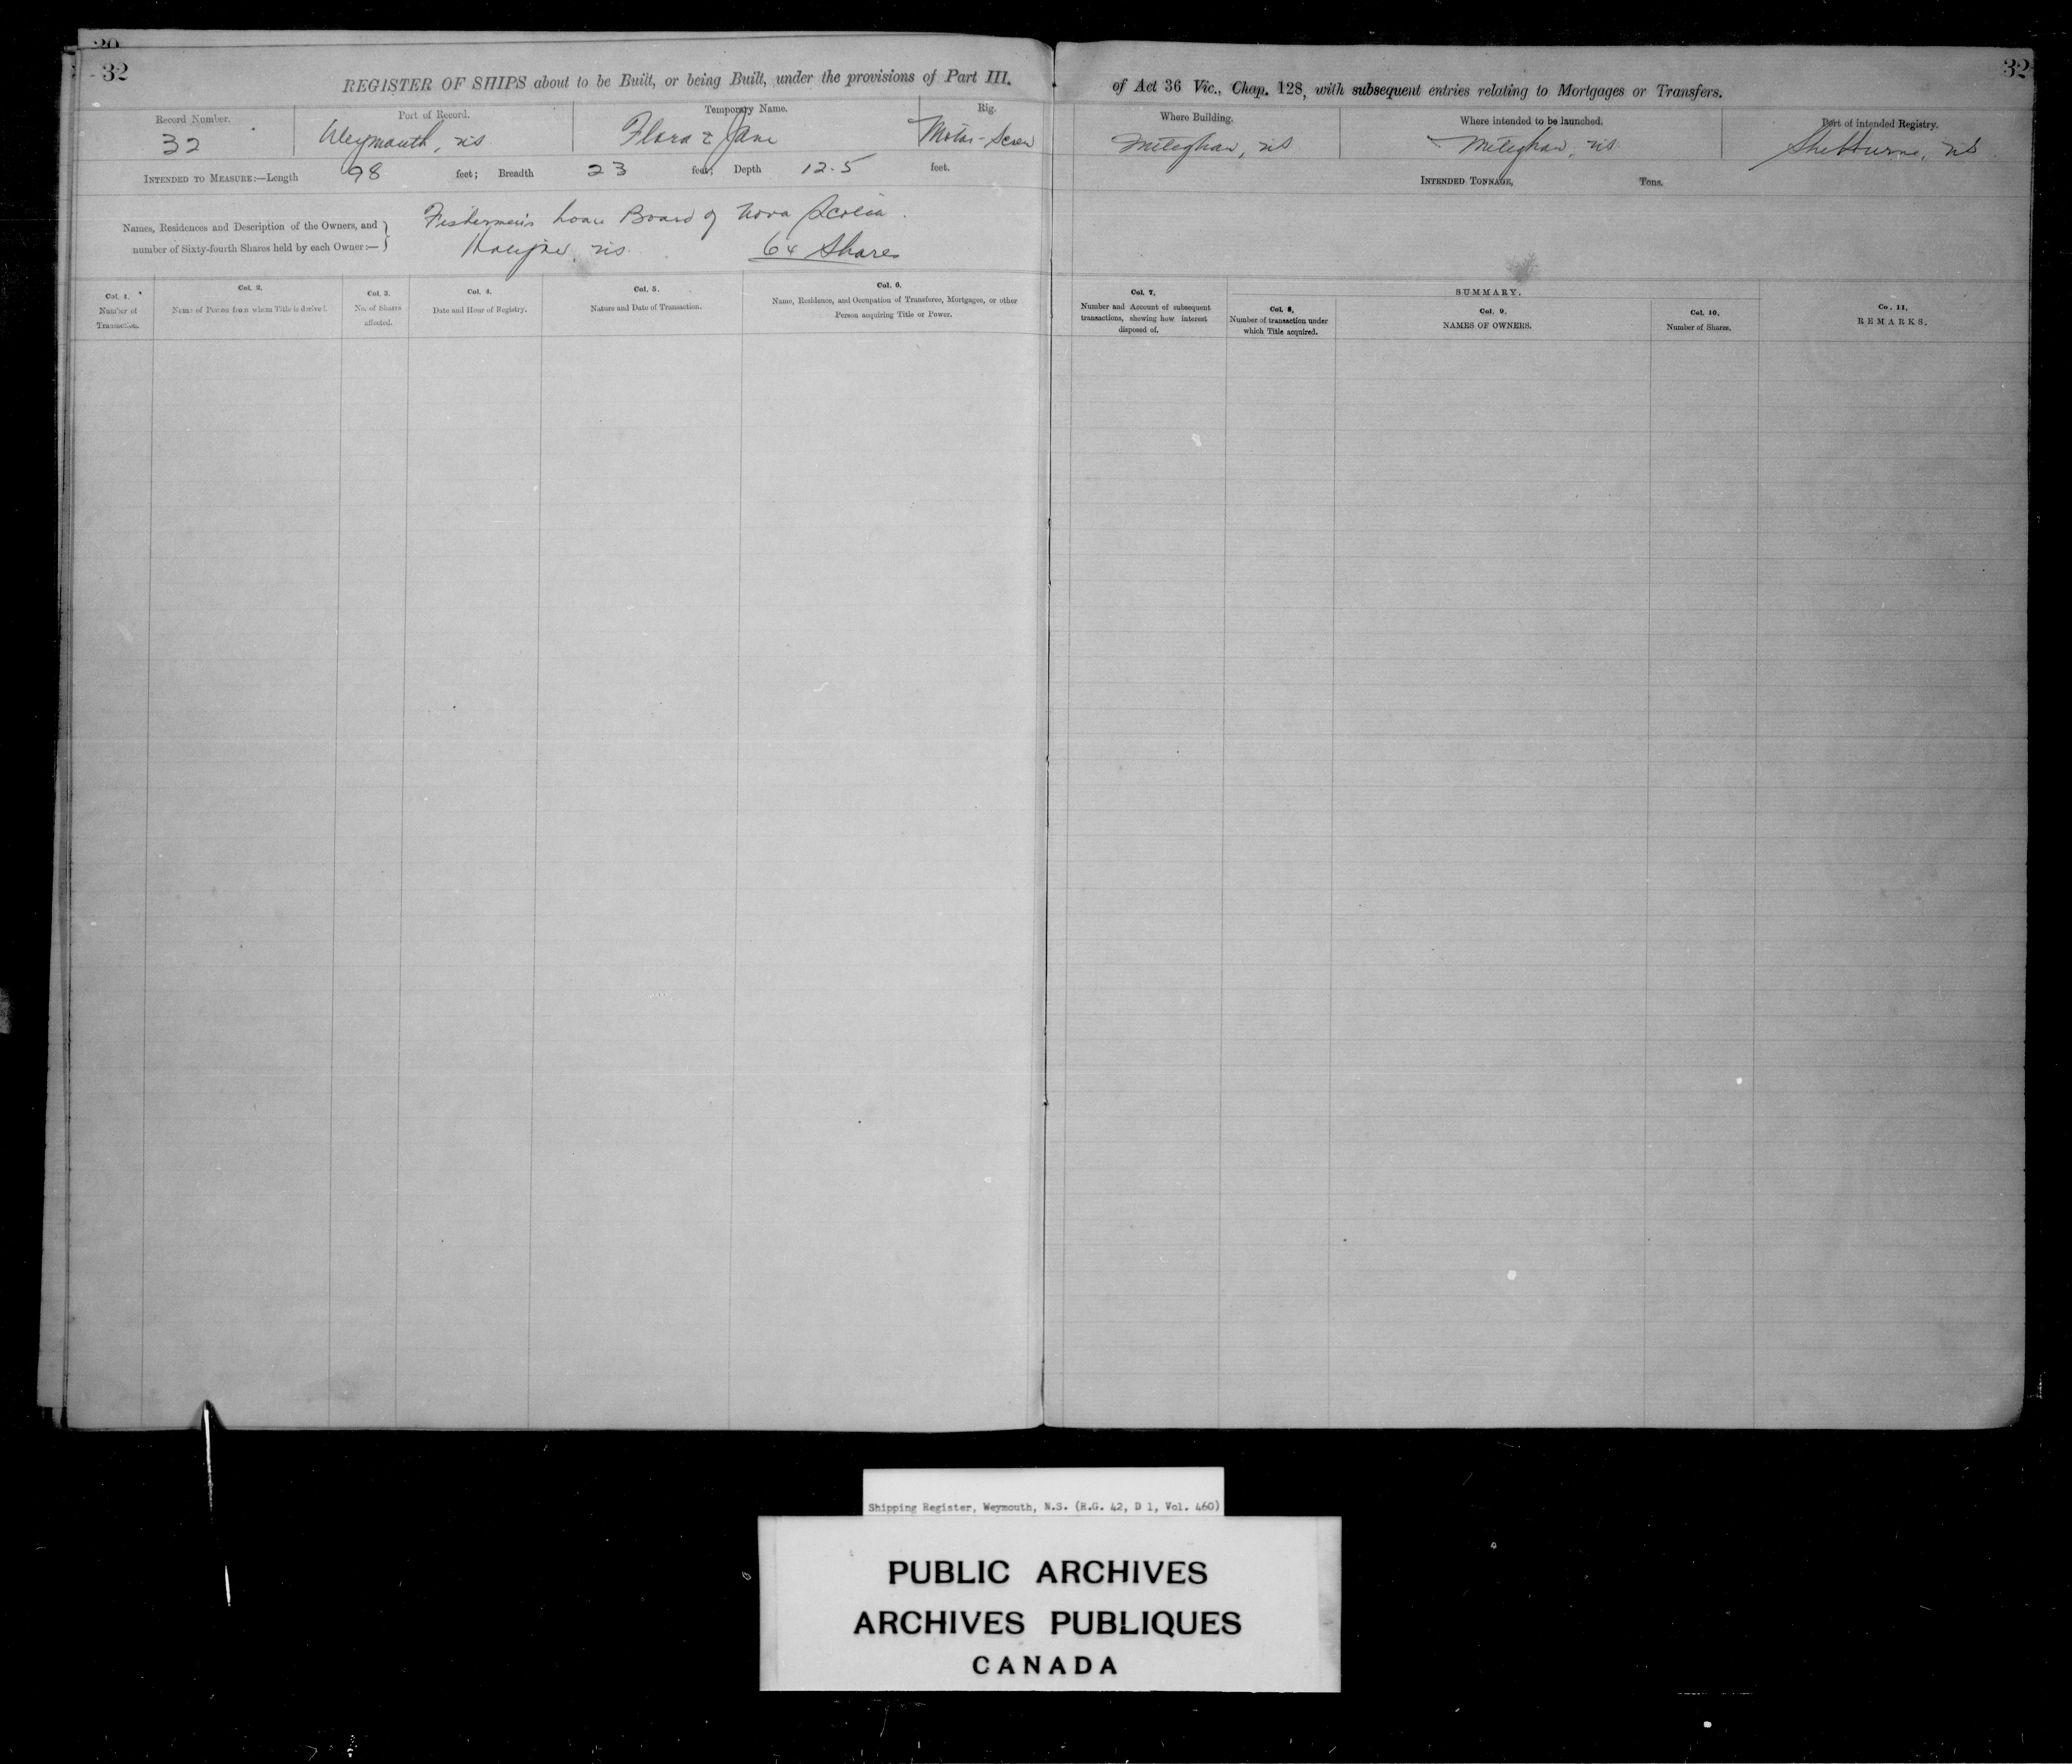 32
REGISTER OF SHIPS about to be Built, or being Built, under the provisions of Part III.
Record Number.
Port of Record.
Temporary Name.
Rig.
32
Weymouth, NS
Flora & Jane
Motor-Screw
INTENDED TO MEASURE:—Length 98 feet; Breadth 23 feet; Depth 12.5 feet.
Names, Residences and Description of the Owners, and
number of Sixty-fourth Shares held by each Owner:—
Fishermen's Loan Board of Nova Scotia.
Halifax, NS 64 Shares
Col. 1.
Number of
Transaction.
Col. 2.
Name of Person from whom Title is derived.
Col. 3.
No. of Shares
affected.
Col. 4.
Date and Hour of Registry.
Col. 5.
Nature and Date of Transaction.
Col. 6.
Name, Residence, and Occupation of Transferee, Mortgagee, or other
Person acquiring Title or Power.
32
of Act 36 Vic., Chap. 128, with subsequent entries relating to Mortgages or Transfers.
Where Building.
Where intended to be launched.
Port of intended Registry.
Meteghan, NS
Meteghan, NS
Shelburne, NS
INTENDED TONNAGE, Tons.
Col. 7.
Number and Account of subsequent
transactions, shewing how interest
disposed of.
SUMMARY.
Col. 8,
Number of transaction under
which Title acquired.
Col. 9.
NAMES OF OWNERS.
Col. 10.
Number of Shares.
Co . 11,
REMARKS.
Shipping Register, Weymouth, N.S. (R.G. 42, D 1, Vol. 460)
PUBLIC ARCHIVES
ARCHIVES PUBLIQUES
CANADA